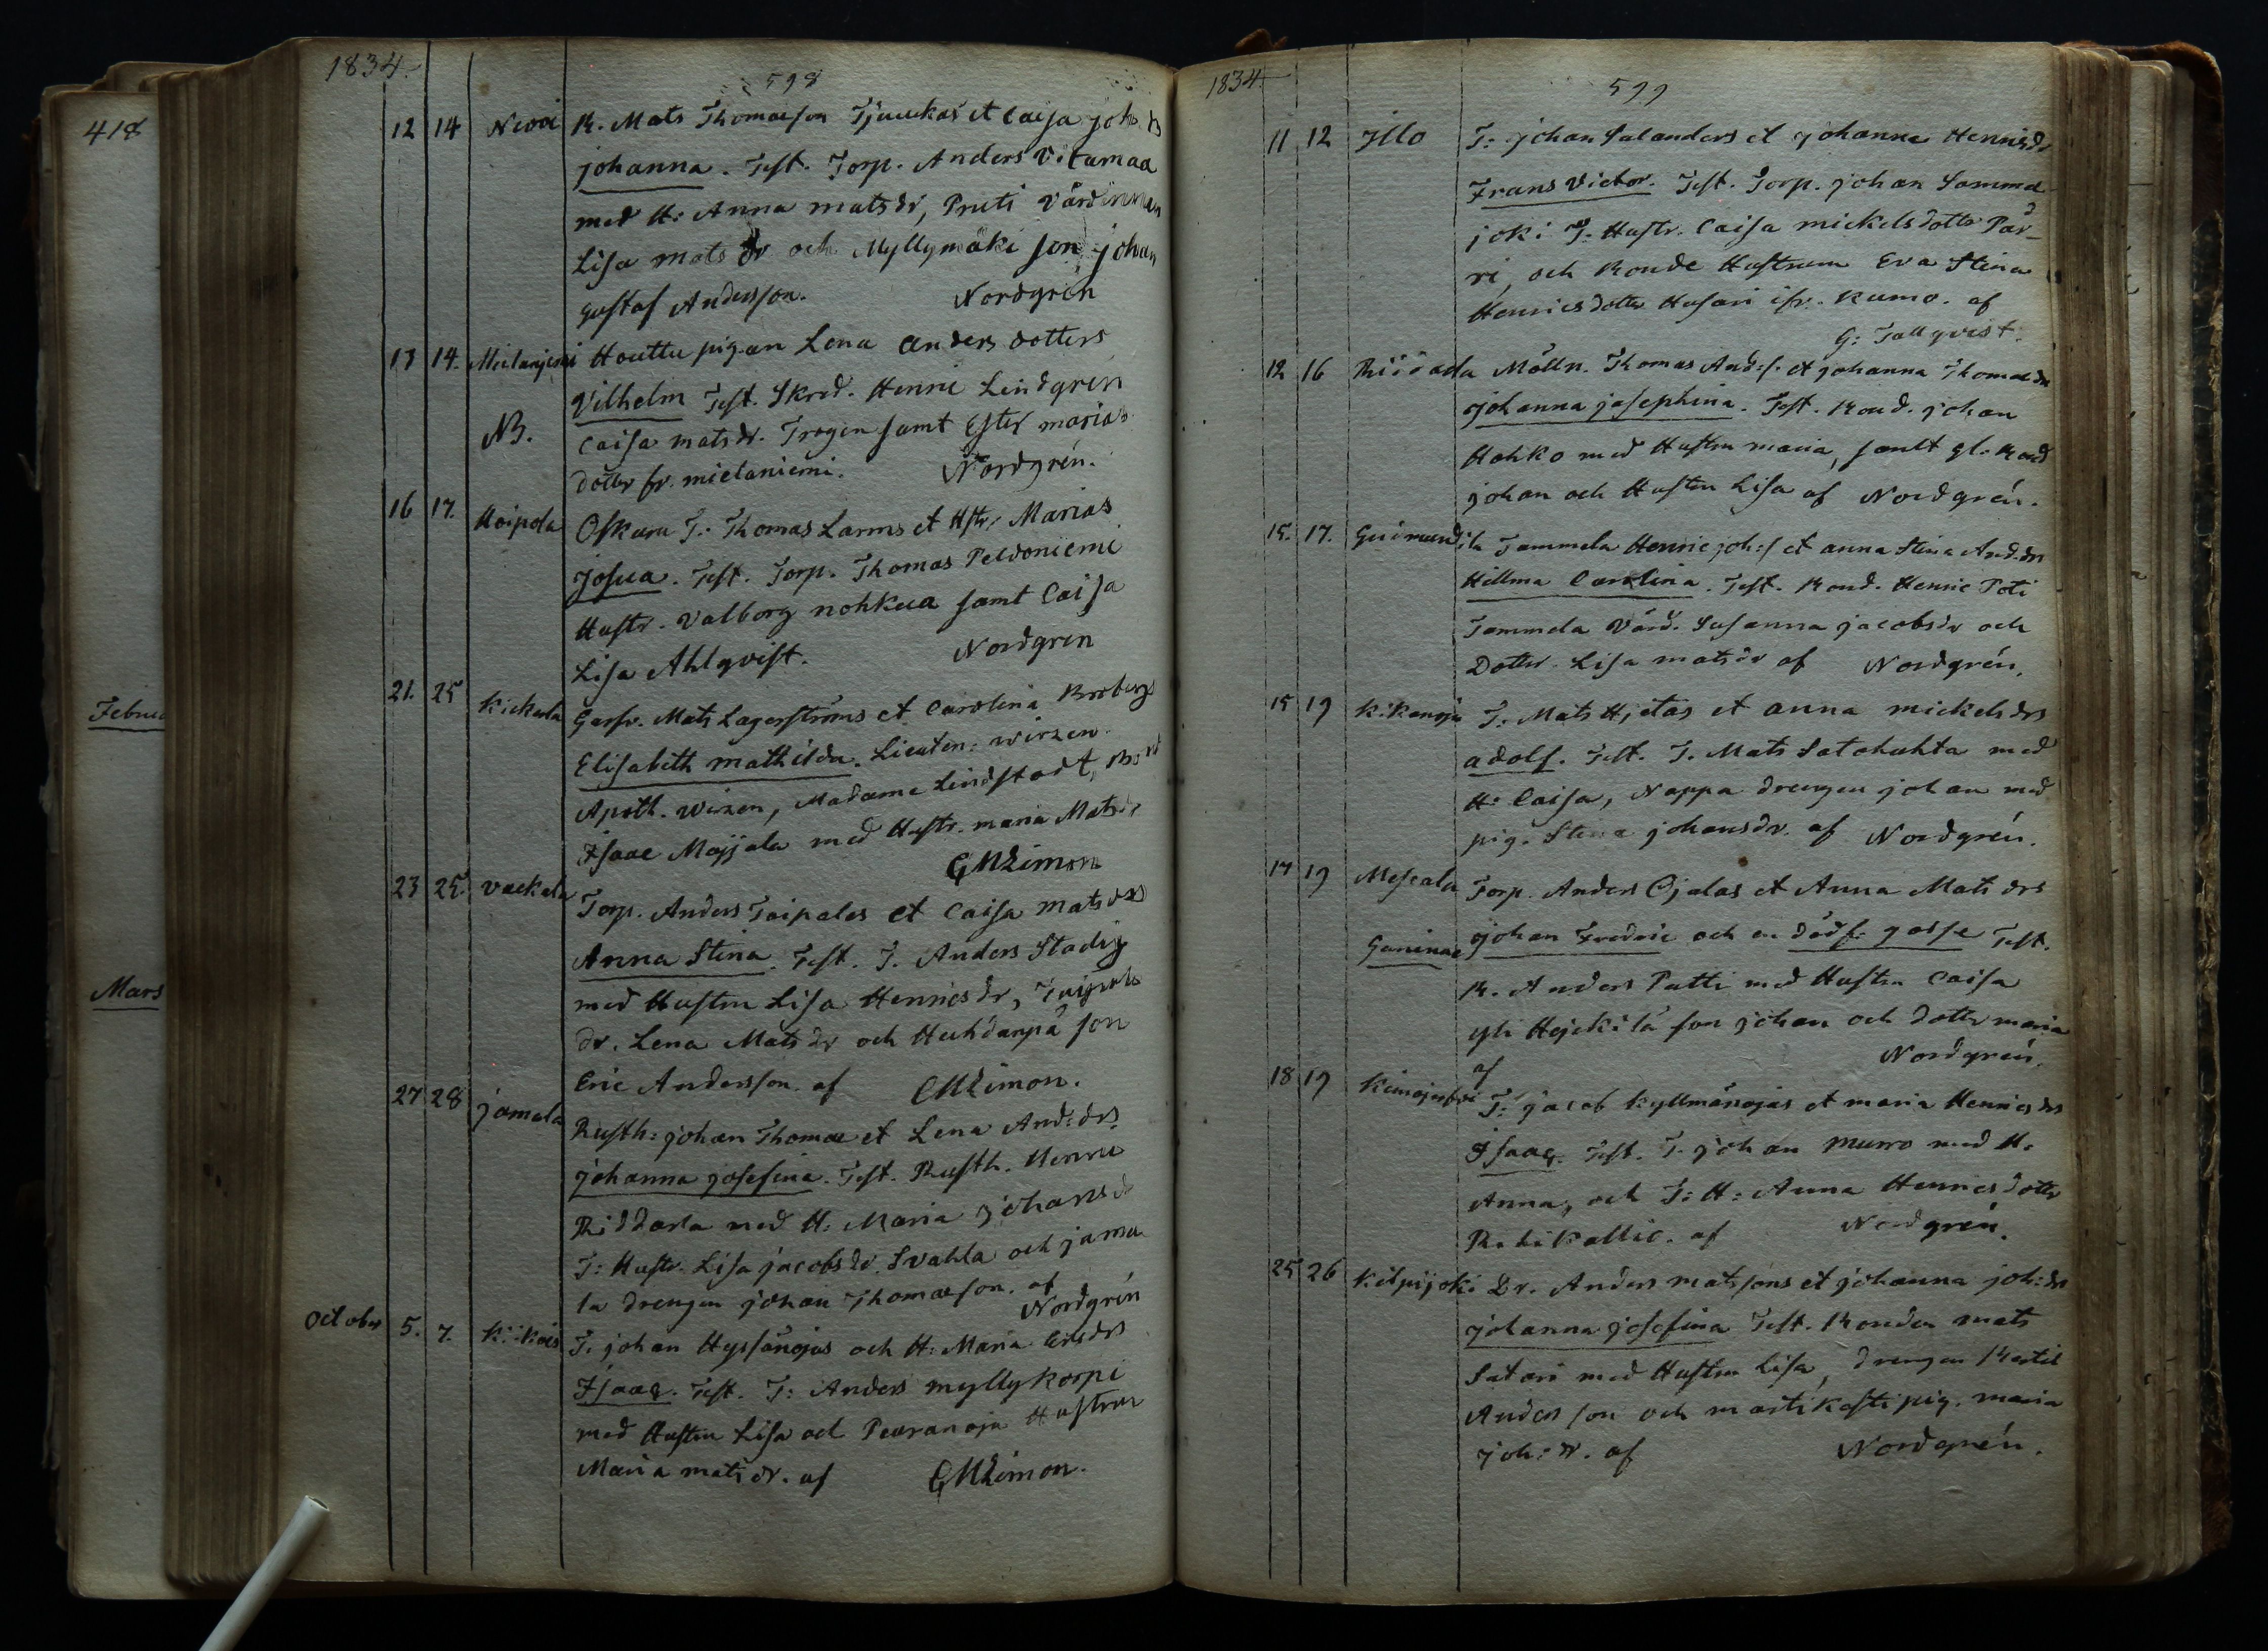 418
Februa
Mars
1834.
598
12 14 Nivoi R. Mats Thomasson Tjauckas et Caisa joh: drs
johanna. Test. Torp. Anders Vitamaa
med H: Anna mats dr, Pruti Värdinnan
Lisa mats dr och Myllymäki son johan
gustaf Andersson. Nordgrén
13 14. Mielanjemi Houttu pigan Lena anders dotters
Vilhelm Test. Skred. Henric Lindgrén
NB. Caisa mats dr. Trogen samt Ester maria
dotter fr. mielaniemi. Nordgrén.
16 17. Hoipola Oskaru T: Thomas Larms et Hstr: Marias
Josua. Test. Torp. Thomas Peldoniemi
Hustr. Valborg nohkua samt Caisa
Lisa Ahlqvist. Nordgrén
21. 25 Kickerla Garfv. Mats Lagerströms et Carolina Brobergs
Elisabeth mathilda. Lieuten: wirzen
Apoth. Wirzen, Madame Lindstedt,
Isaac Majjala med Hustr. maria Mats dr
GMLimon
23 25. Vackala Torp. Anders Taipales et Caisa mats drs
Anna Stina. Test. T. Anders Stadig
med Hustru Lisa Henrics dr, Taipale
dr. Lena Mats dr och Huhdanpä son
Eric Andersson. af GMLimon.
27 28 jamala Rusth: johan Thomae et Lena And: drs.
johanna josefina. Test. Rusth. Henric
Riddarla med H: Maria johans dr
T: Hustr. Lisa jacobs dr. Svahla och jama
la drengen johan Thomasson. af
Nordgrén
October 5. 7. Kiikois T. johan Hyssänojas och H: Maria Erics drs
Isaac. Test. T: Anders myllykorpi
med Hustru Lisa och Peuranoja Hustrun
Maria mats dr. af GMLimon.
1834.
599
11 12 Illo T: johan Salanders et johanna Henrics dr
Frans Victor. Test. Torp. johan Samma
joki T. Hustr. Caisa mickelsdotter Pär-
ri, och Bonde Hustrun Eva Stina
Henricsdotter Husari ifr. Kumo. af
G: Tallqvist.
12 16 Riddala Mölln. Thomas And:s. et johanna Thomae dr
johanna josephina. Test. Bond. johan
Hohko med Hustru maria, samt gl. Bond
johan och Hustru Lisa af Nordgrén.
15. 17. Gudmundila Tammela Henric joh:s et anna Stina And. drs
Hillma Carolina. Test. Bond. Henric Poti
Tammela Värd. Susanna jacobs dr och
Dotter Lisa mats dr af Nordgrén.
15 19 Kikanoja T: Mats Hjetas et anna mickels drs
adolf. Test. T. Mats Satahuhta med
H: Caisa, Nappa drengen johan med
pig. Stina johans dr. af Nordgrén.
17 19 Meskala Torp. Anders Ojalas et Anna Mats drs
Geminae johan Fredric och en dödf: gosse Test.
R. Anders Putti med Hustru Caisa
Yli Hejckilä son johan och dotter maria
af Nordgrén.
18 19 T: jacob Kyllmänojas et maria Henrics drs
Isaac. Test. T. johan Murro med H.
Anna, och T: H: Anna Henrics dotter
Rekikallio. af Nordgrén.
25 26 Kilpijoki Dr. Anders matssons et johanna joh: drs
johanna josefina Test. Bonden mats
Satari med Hustru Lisa, drengen Bertil
Andersson och martikosti pig. maria
joh: dr. af Nordgrén.